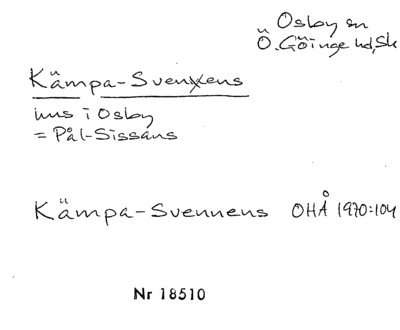 Osby sn
Ö. Göinge hd, Sk
Kämpa-Svennens
hus i Osby
= Pål-Sissans
Kämpa-Svennens OHÅ 1970:104
Nr 18510